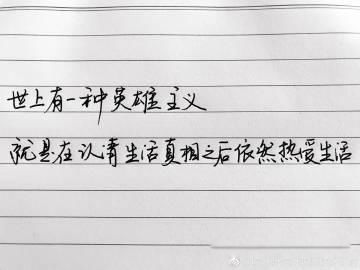 世上有一种英雄主义
就是在认清生活真相之后依然热爱生活